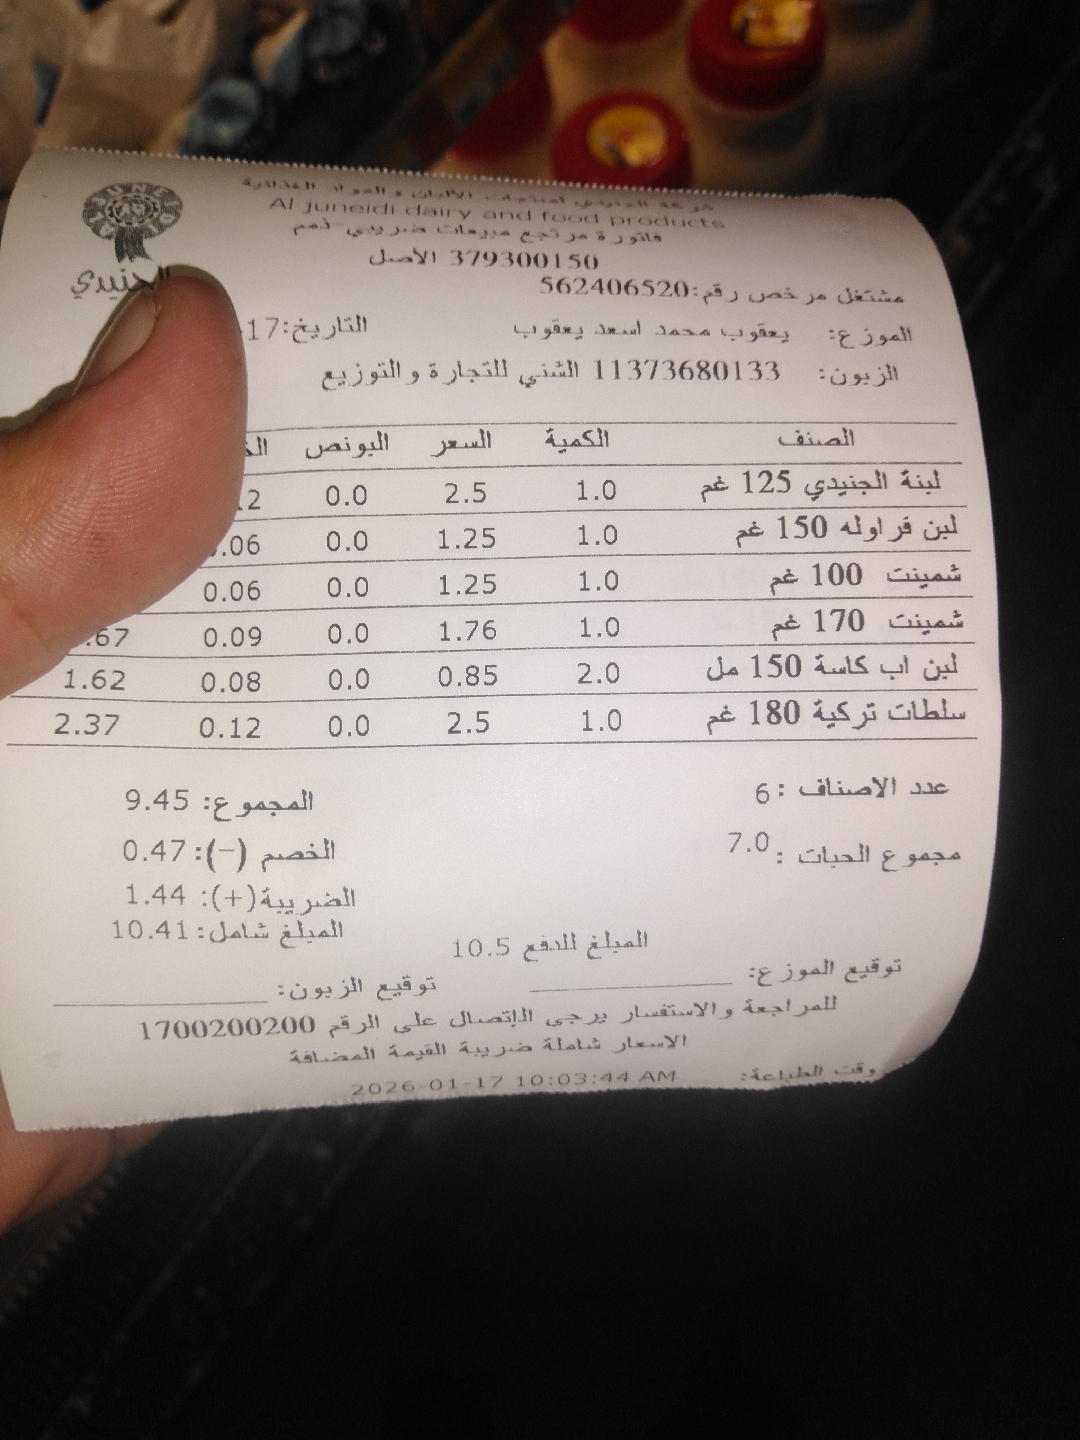 شركة الجنيدي لمنتجات الألبان والمواد الغذائية
Al Juneidi dairy and food products
فاتورة مرتجع مبيعات ضريبي-ذمم
379300150 الأصل
الجنيدي
مشتغل مرخص رقم:562406520
الموزع: يعقوب محمد اسعد يعقوب التاريخ:17-
الزبون: 11373680133 الشني للتجارة والتوزيع
الصنف الكمية السعر البونص
لبنة الجنيدي 125 غم 1.0 2.5 0.0
لبن فراوله 150 غم 1.0 1.25 0.0 .06
شمينت 100 غم 1.0 1.25 0.0 0.06
شمينت 170 غم 1.0 1.76 0.0 0.09 .67
لبن اب كاسة 150 مل 2.0 0.85 0.0 0.08 1.62
سلطات تركية 180 غم 1.0 2.5 0.0 0.12 2.37
عدد الاصناف : 6 المجموع: 9.45
مجموع الحبات : 7.0 الخصم (-): 0.47
الضريبة(+): 1.44
المبلغ شامل: 10.41
المبلغ للدفع 10.5
توقيع الموزع: ____________ توقيع الزبون: ____________
للمراجعة والاستفسار يرجى الإتصال على الرقم 1700200200
الاسعار شاملة ضريبة القيمة المضافة
وقت الطباعة: 2026-01-17 10:03:44 AM